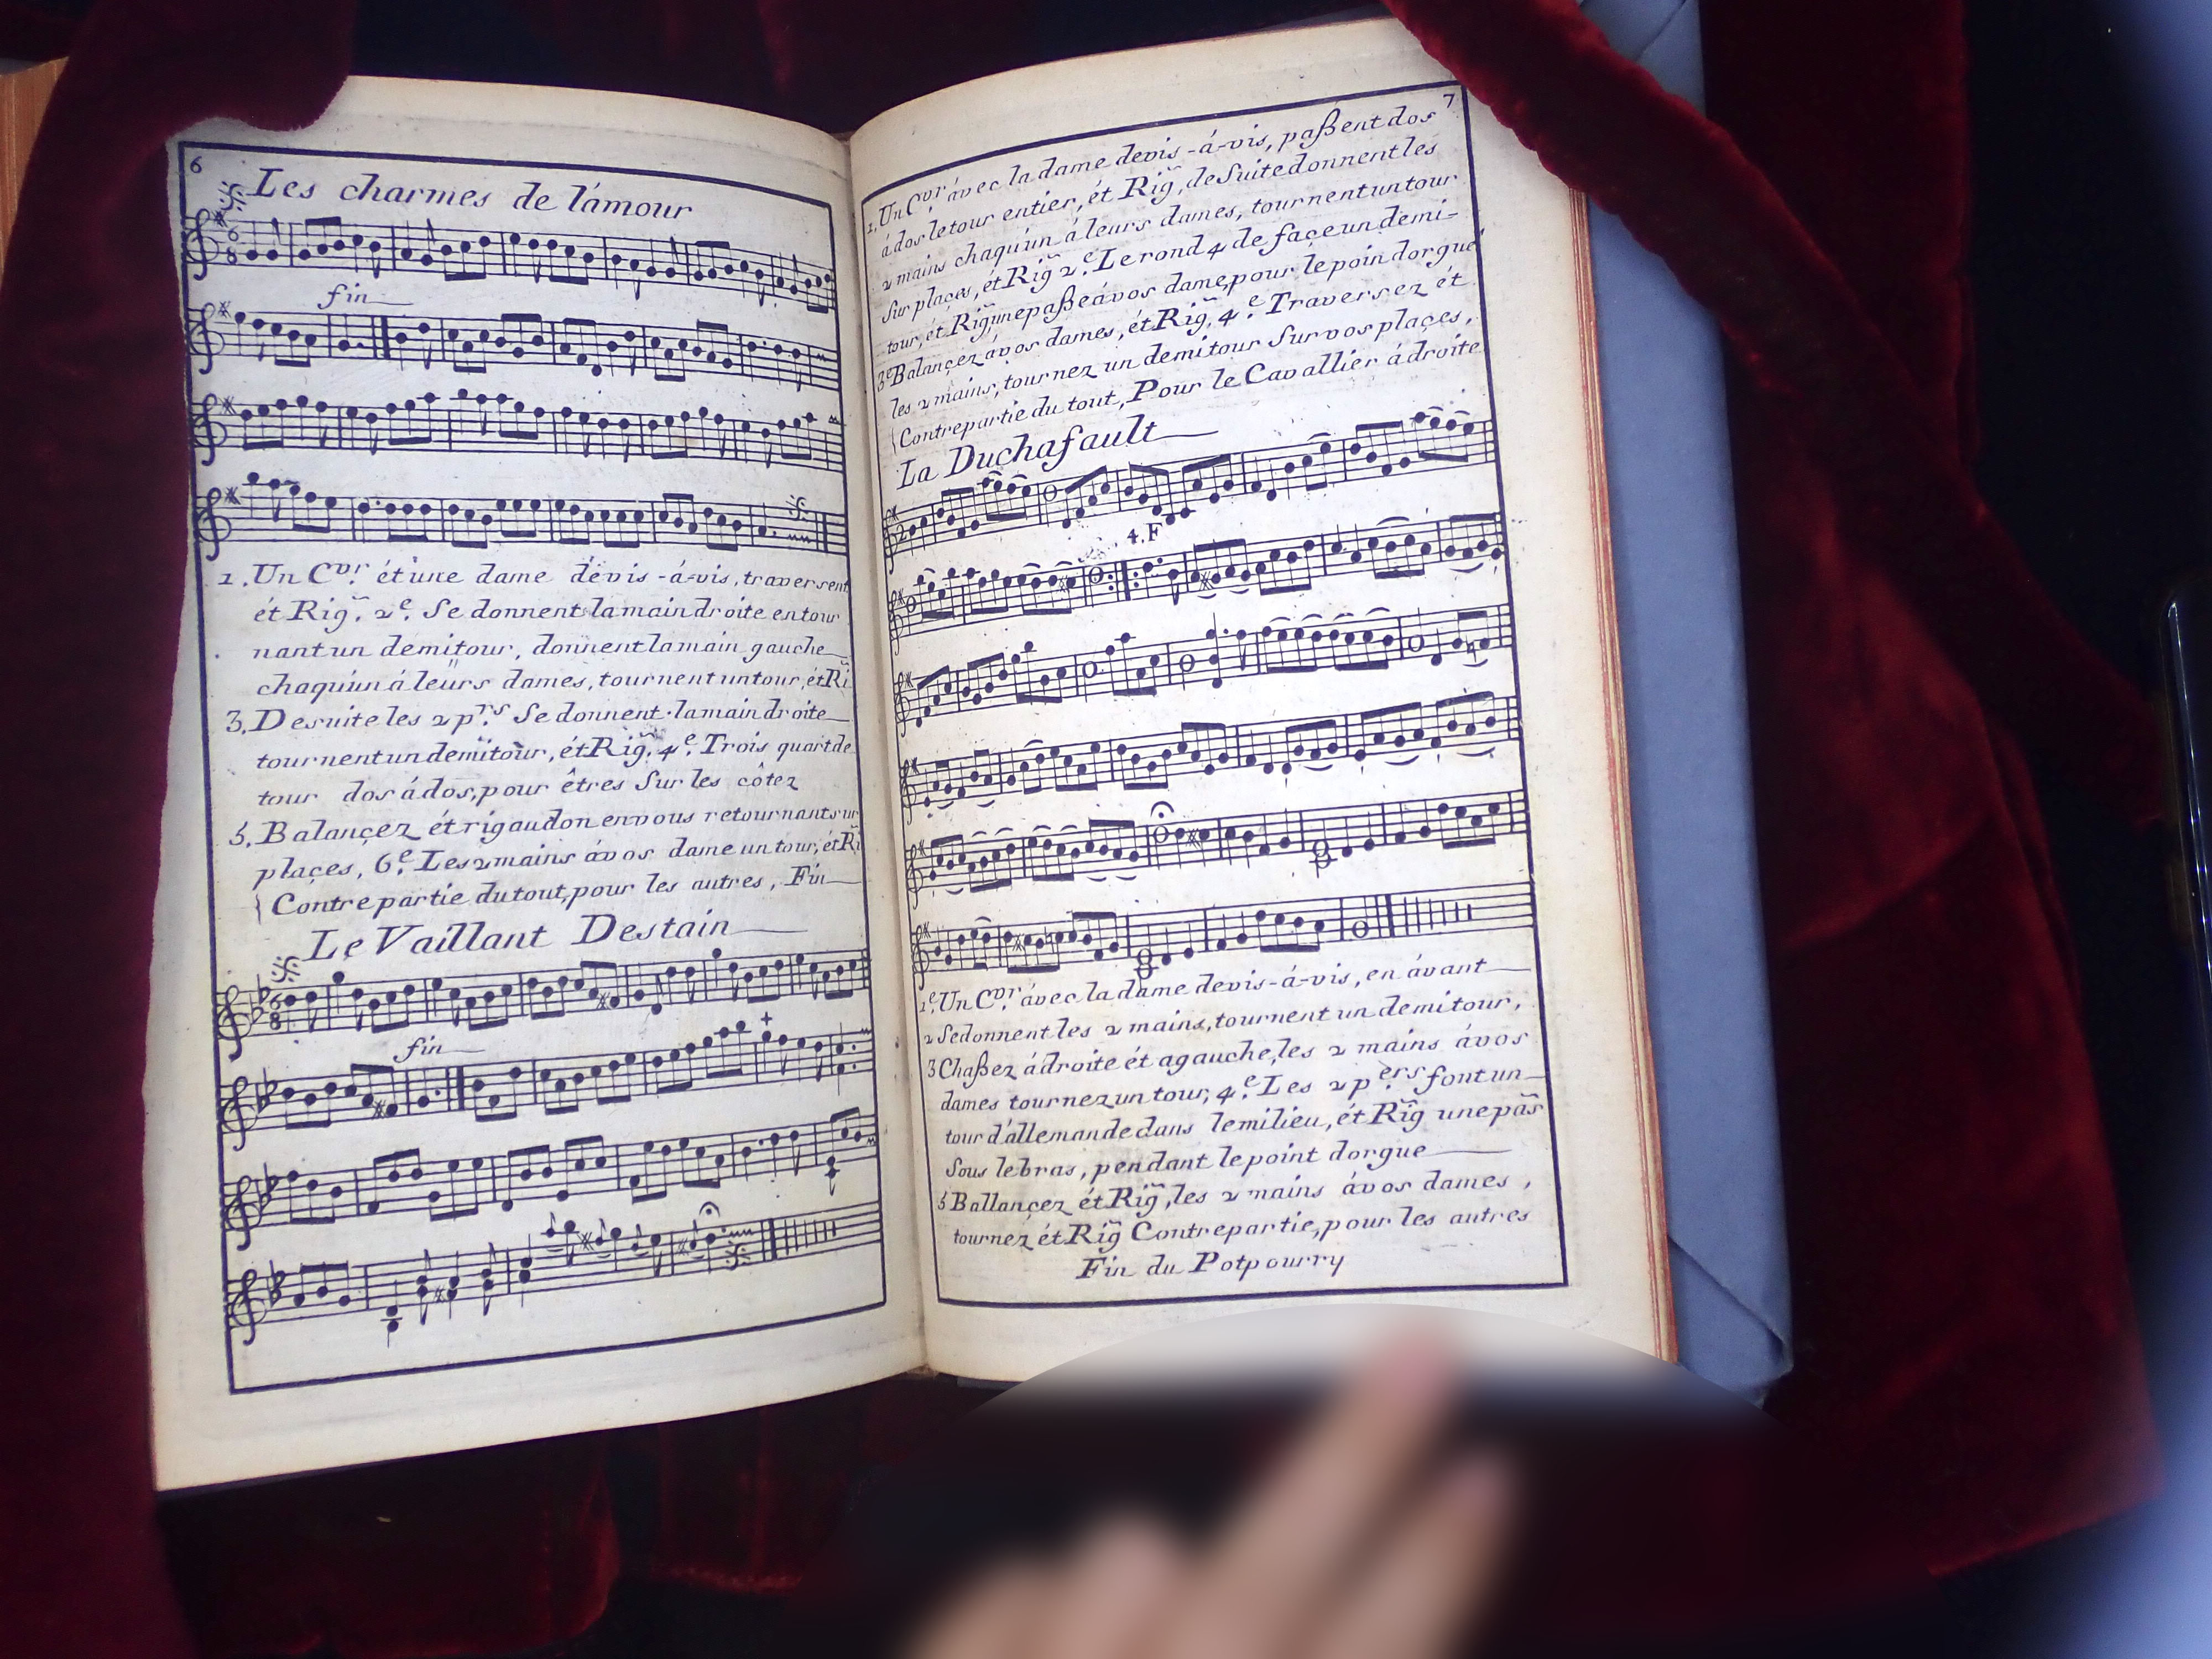 6
Les charmes de l'amour
fin
1. Un C.vr ét une dame devis-á-vis, traversent
ét Rig. 2.e Se donnent la main droite en tour
nant un demitour, donnent la main gauche
chaqu'un á leurs dames, tournent un tour, ét Ri
3. De suite les 2 p.rs Se donnent la main droite
tournent un demitour, ét Rig. 4.e Trois quart de
tour dos á dos, pour êtres Sur les côtez
5. Balançez ét rigaudon en vous retournant sur
plaçes, 6.e Les 2 mains ávos dame un tour, ét Ri
Contrepartie du tout, pour les autres, Fin
Le Vaillant Destain
fin
7
1. Un C.vr ávec la dame devis-á-vis, paßent dos
á dos le tour entier, ét Rig, de Suite donnent les
2 mains chaqu'un á leurs dames, tournent un tour
Sur plaçes, ét Rig 2.e Le rond 4 de façe un demi-
tour, ét Rig, une paße ávos dame, pour le poin dorgue
3e Balançez ávos dames, ét Rig, 4.e Traversez ét
les 2 mains, tournez un demitour Sur vos plaçes,
Contrepartie du tout, Pour le Cavallier ádroite
La Duchafault
4.F
1.e Un C.vr ávec la dame devis-á-vis, en ávant
2 Se donnent les 2 mains, tournent un demitour,
3 Chaßez ádroite ét agauche, les 2 mains ávos
dames tournez un tour, 4.e Les 2 p.ers font un
tour d'allemande dans le milieu, ét Rig une pas
Sous le bras, pendant le point dorgue
5 Ballançez ét Rig, les 2 mains ávos dames,
tournez ét Rig Contrepartie, pour les autres
Fin du Potpourry